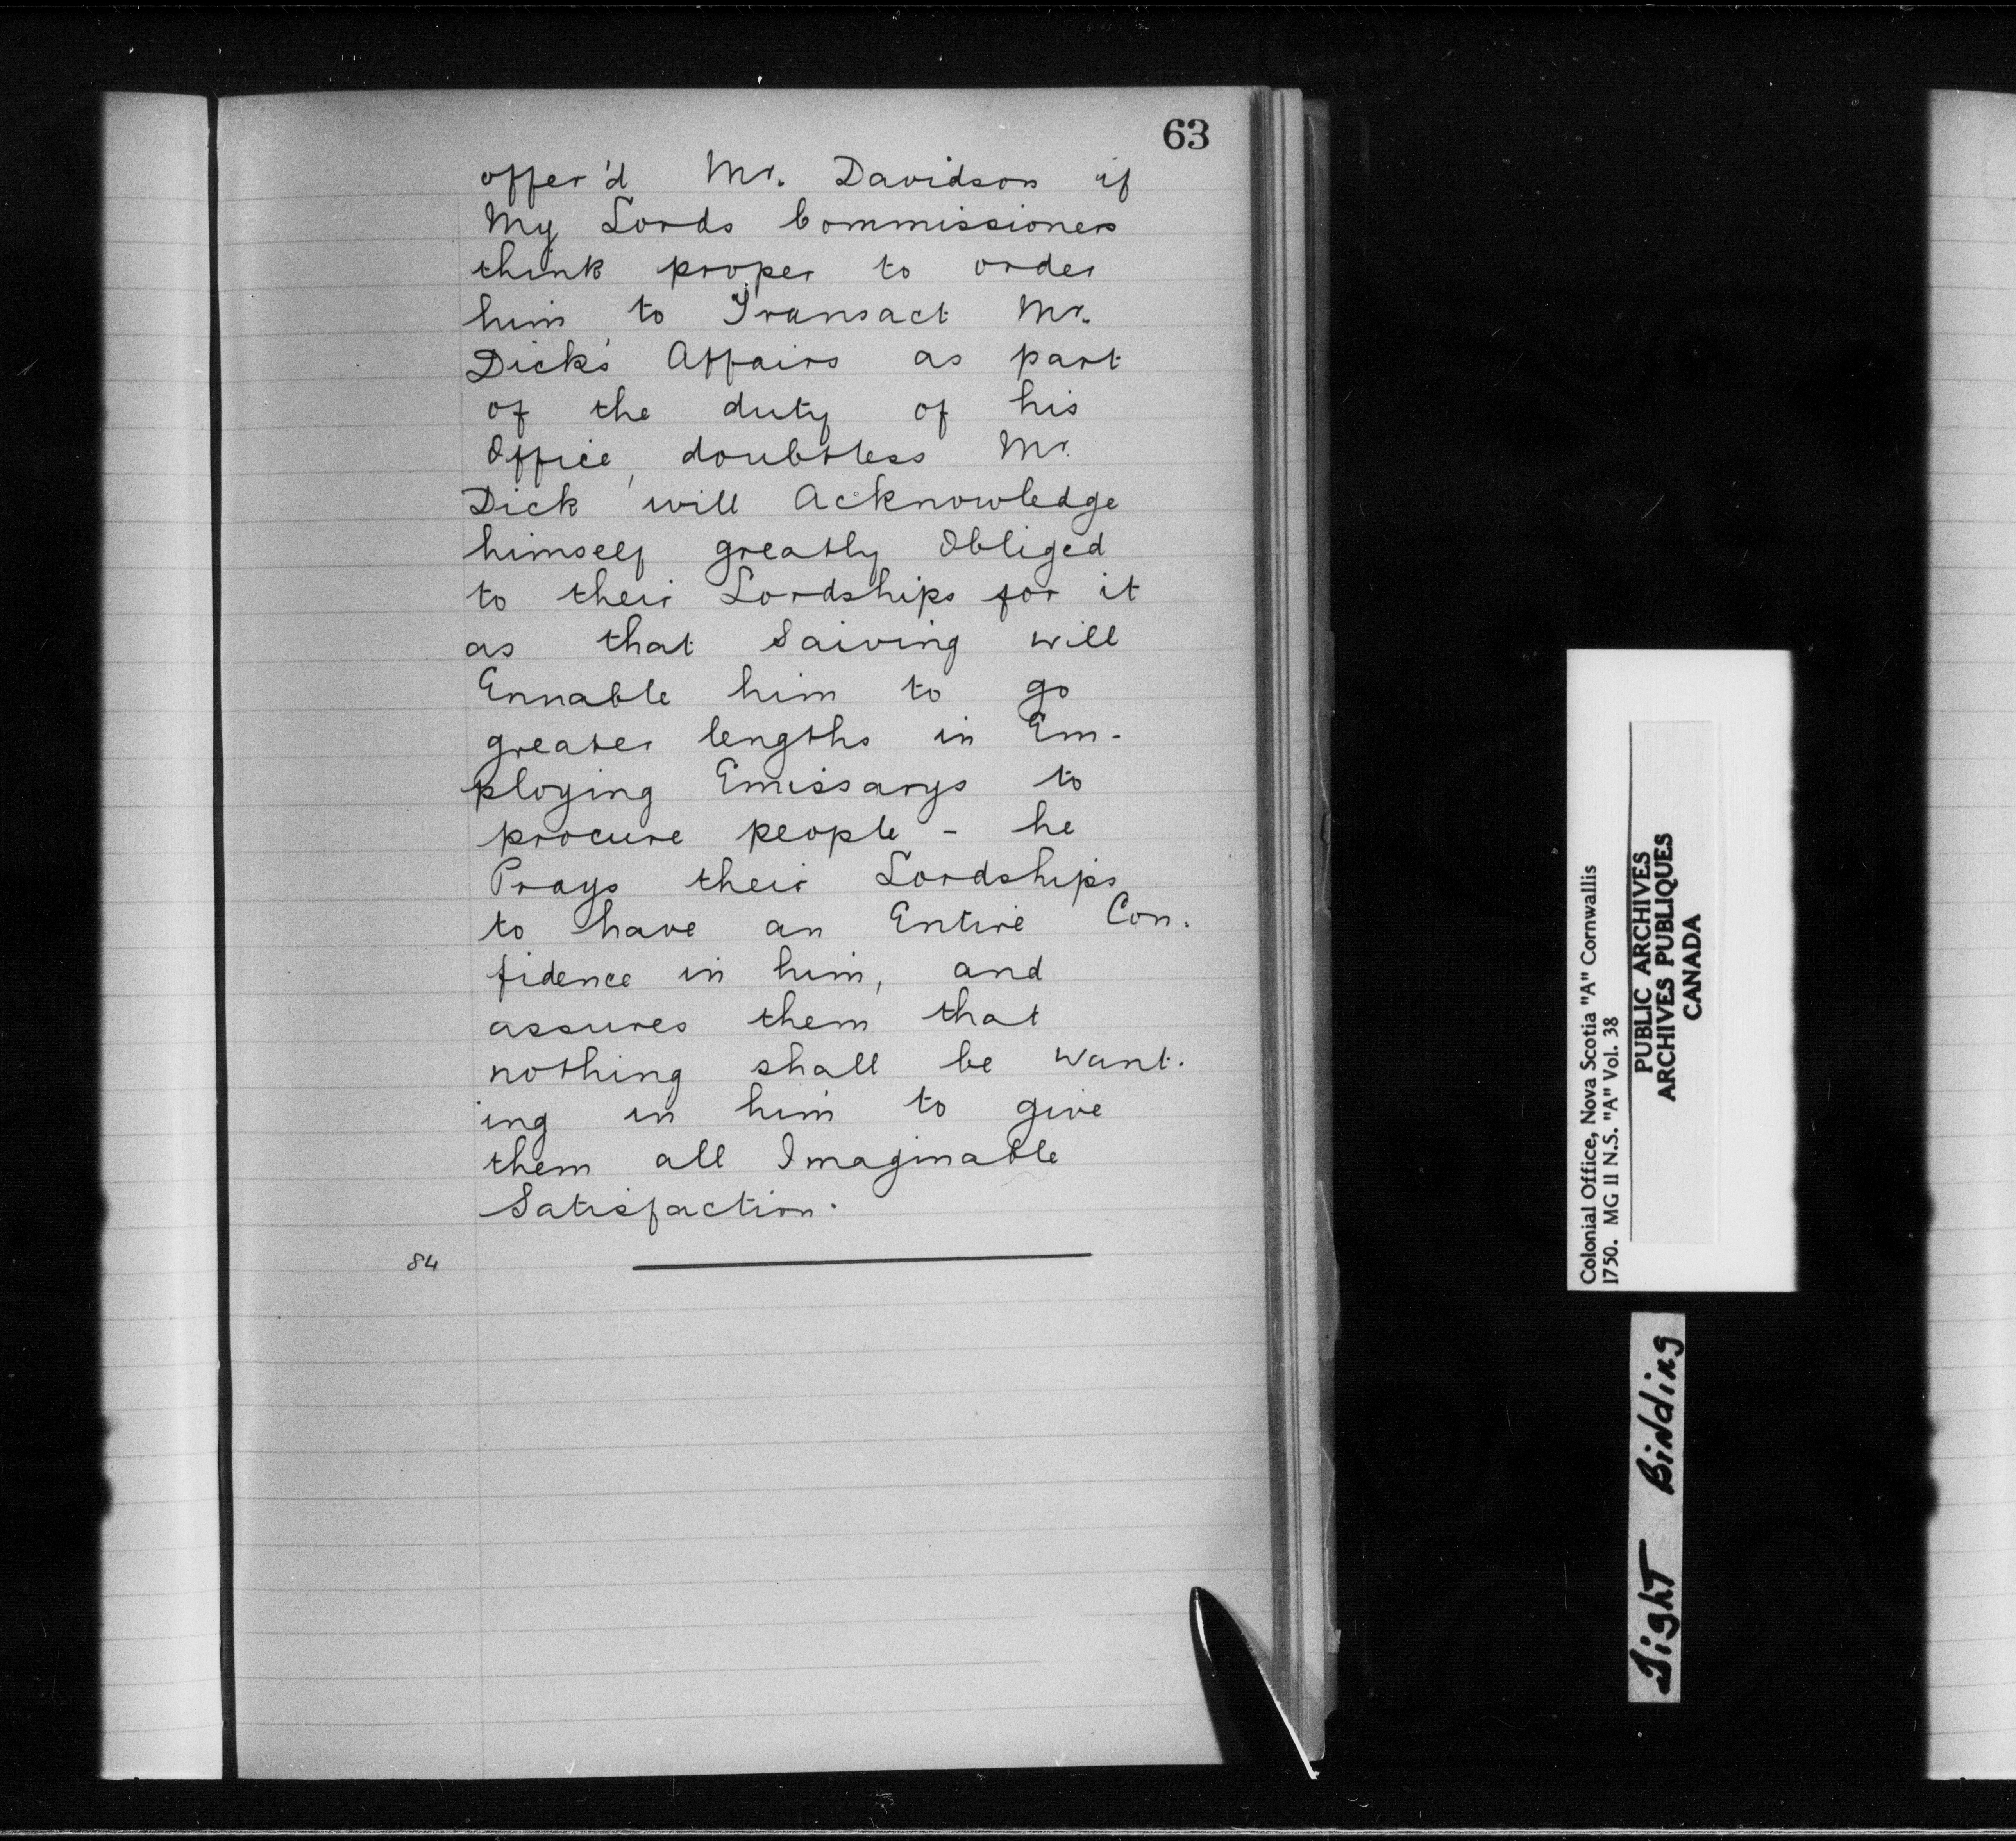 63
offer'd Mr. Davidson if
My Lords Commissioners
think proper to order
him to Transact Mr.
Dick's Affairs as part
of the duty of his
Office, doubtless Mr.
Dick will Acknowledge
himself greatly Obliged
to their Lordships for it
as that Saiving will
Ennable him to go
greater lengths in Em-
ploying Emissarys to
procure people - he
Prays their Lordships
to have an Entire Con-
fidence in him, and
assures them that
nothing shall be want-
ing in him to give
them all Imaginable
Satisfaction.
84
Colonial Office, Nova Scotia "A" Cornwallis
1750. MG 11 N.S. "A" Vol. 38
PUBLIC ARCHIVES
ARCHIVES PUBLIQUES
CANADA
Tight Binding